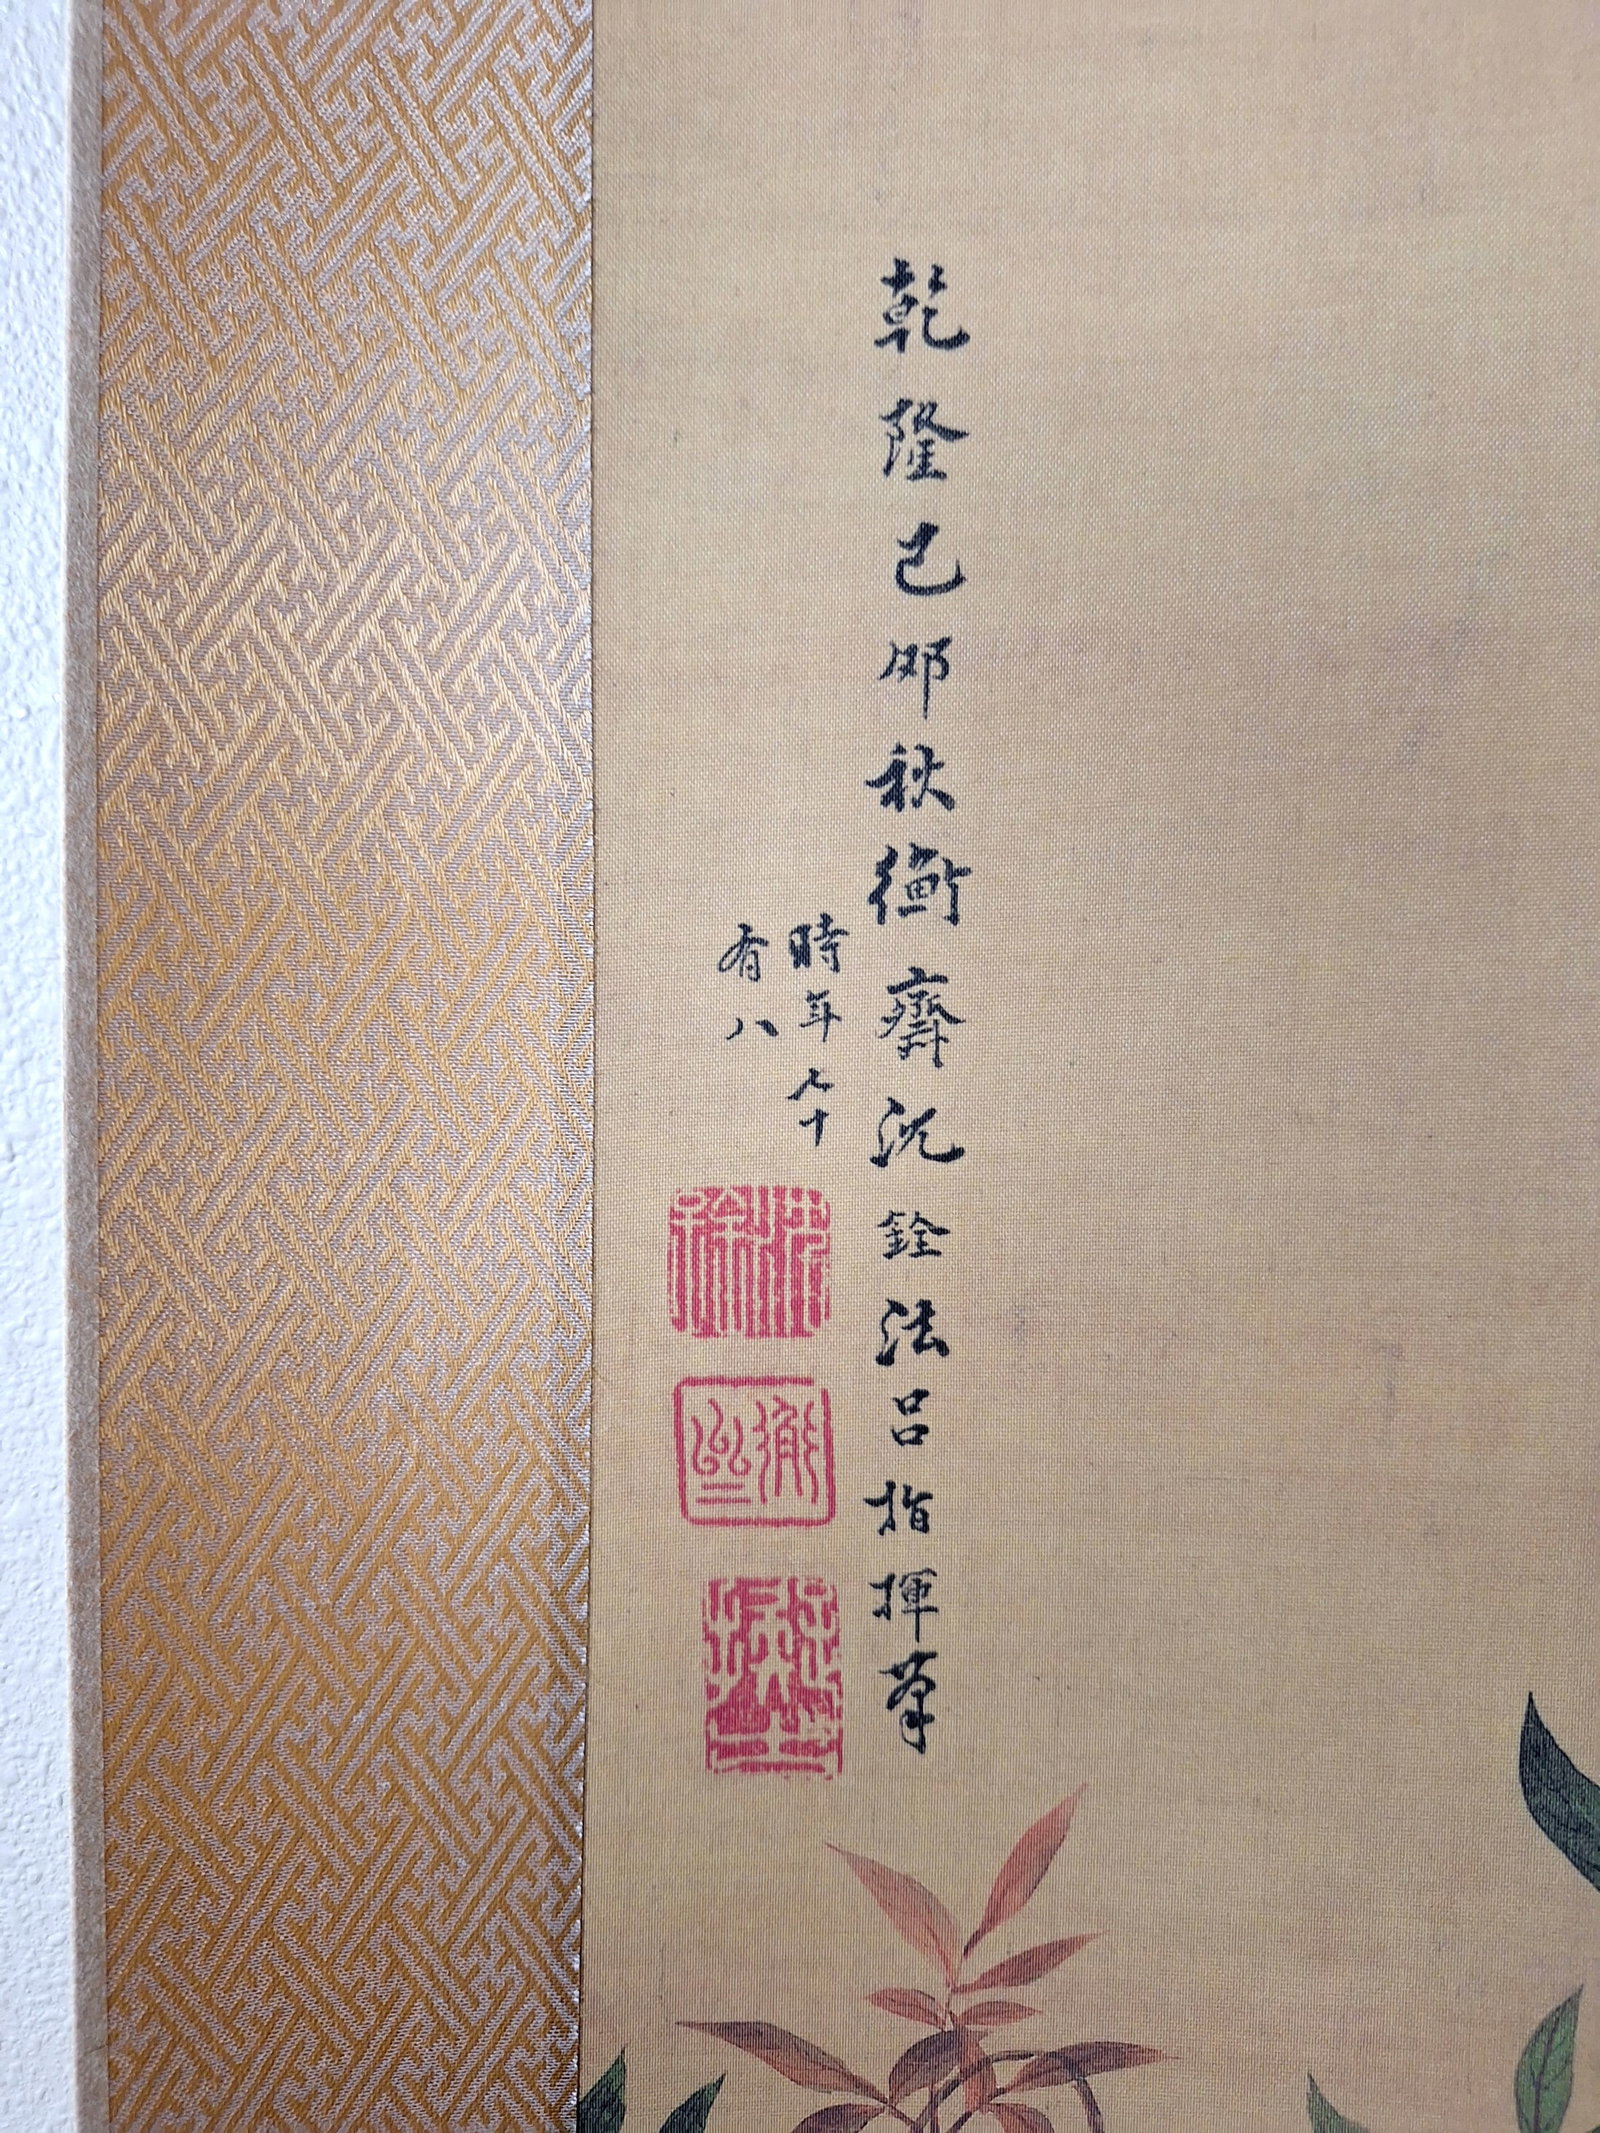 乾隆己卯秋衡齋沈銓法呂指揮筆
時年七十
有八